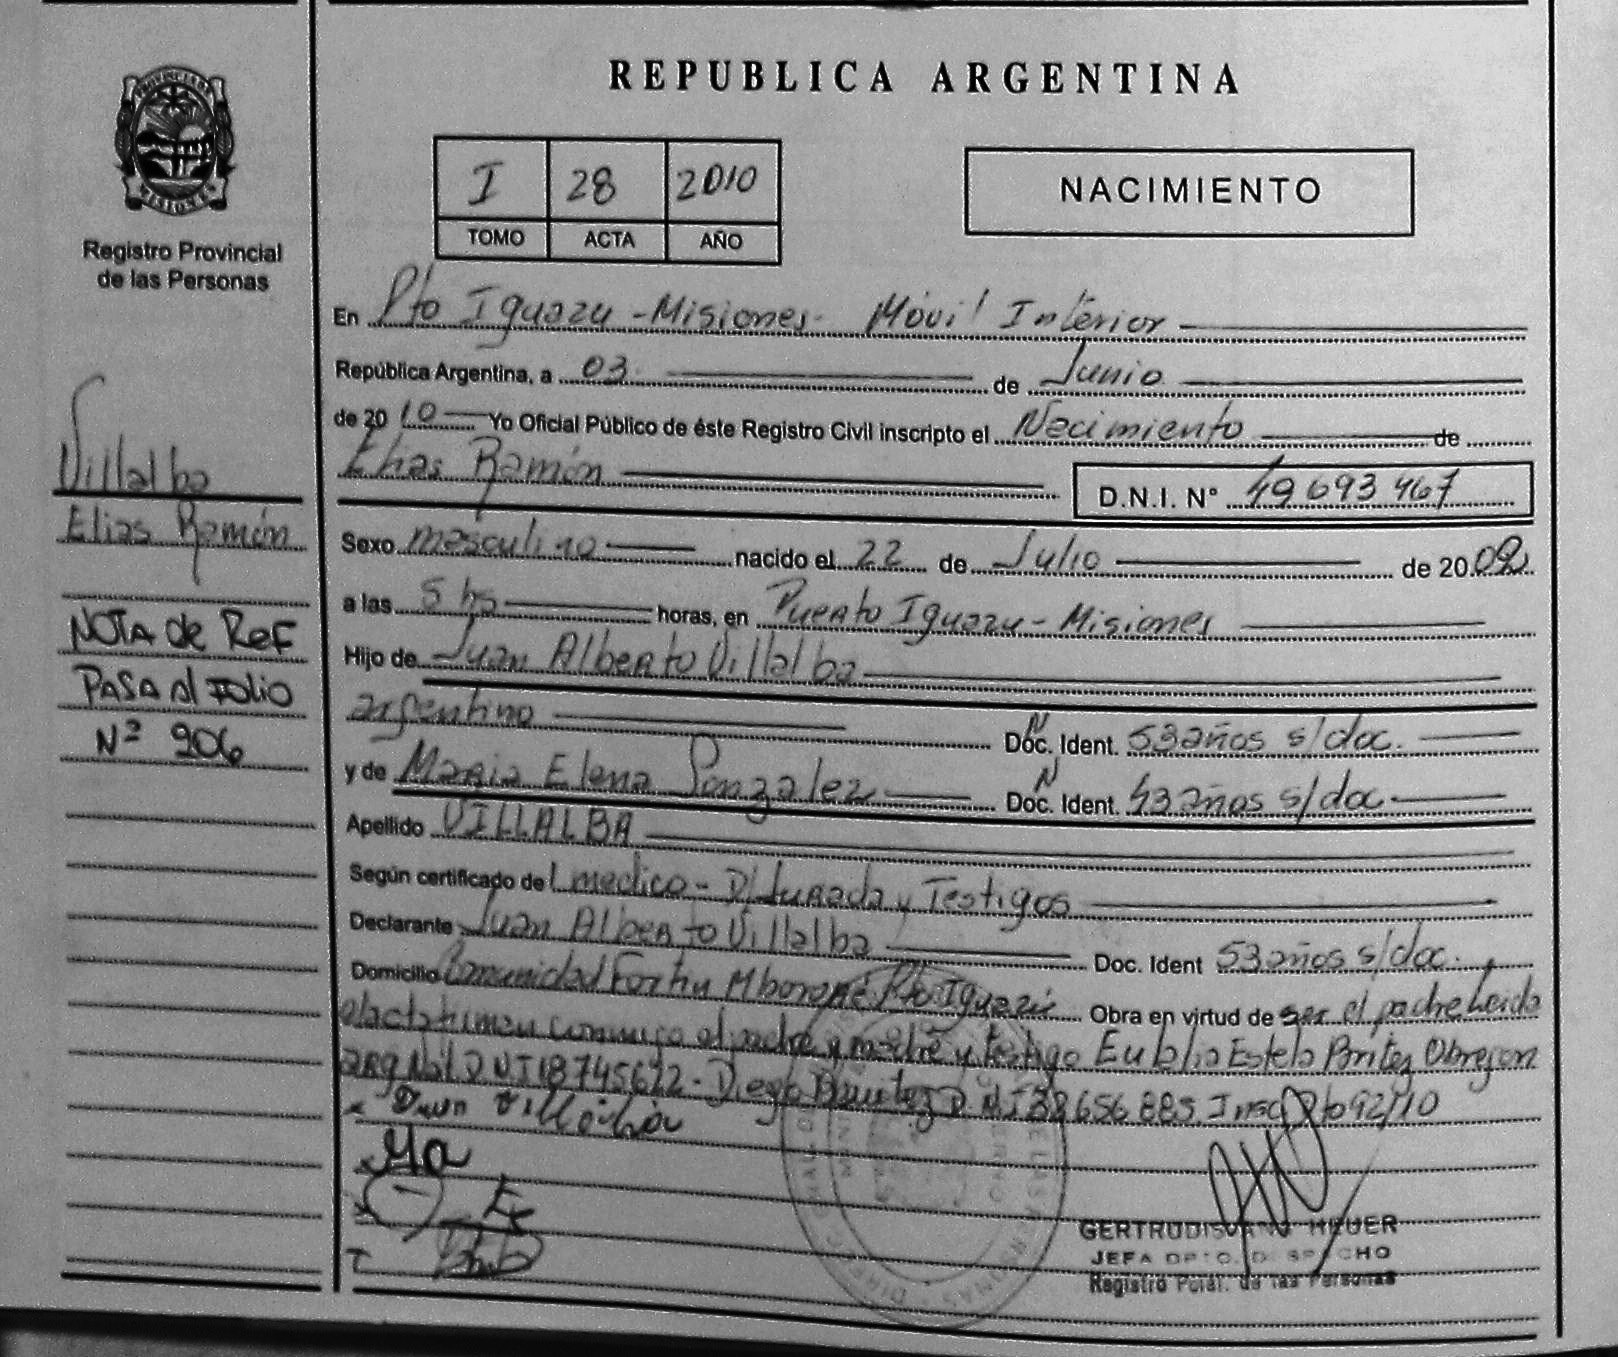 PROVINCIA DE
MISIONES
Registro Provincial
de las Personas
Villalba
Elias Ramón
NOTA de Ref
PASA al Folio
Nº 206
REPUBLICA ARGENTINA
I 28 2010
TOMO ACTA AÑO
NACIMIENTO
En Pto Iguazu - Misiones - Móvil Interior
República Argentina, a 03 de Junio
de 2010 Yo Oficial Público de éste Registro Civil inscripto el Nacimiento de
Elias Ramón
D.N.I. N° 49693467
Sexo masculino nacido el 22 de Julio de 2009
a las 5 hs horas, en Puerto Iguazu - Misiones
Hijo de Juan Alberto Villalba
argentino Doc. Ident. 53 años s/doc.
y de Maria Elena Gonzalez Doc. Ident. 43 años s/doc
Apellido VILLALBA
Según certificado del medico - D/Jurada y Testigos
Declarante Juan Alberto Villalba Doc. Ident 53 años s/doc.
Domicilio Comunidad Fortin Mborore Pto Iguazú Obra en virtud de ser el padre Leida
el acta firman conmigo el padre y madre y testigo Eulalia Estela Britez Obregon
arg Nal. DNI 18745672 - Diego Benitez D.N.I 38656885. Insc 92/10
Ma
GERTRUDIS HEUER
JEFA DPTO. DESPACHO
Registro Pcial. de las Personas